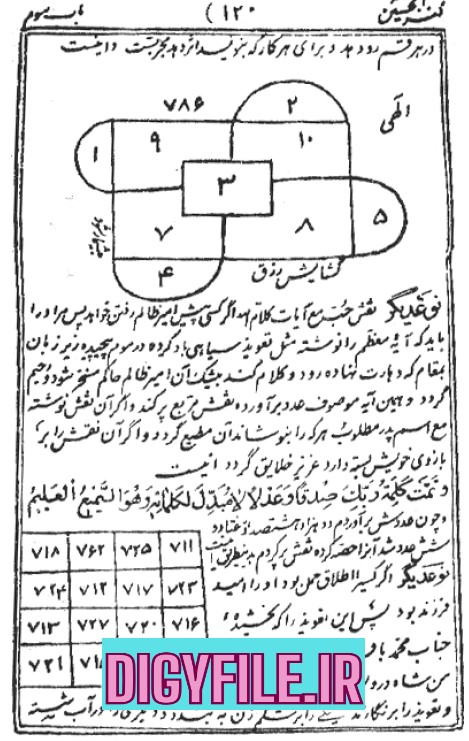 باب سوم (۱۲۰ کنز الحسین
در هر قسم رود هد و برای هر کار که بنویسد اثر دهد مجربست و اینست
الهی
۷۸۶
۲
۹ ۱۰
۱ ۳ ۵
۷ ۸
۴
گشایش رزق
نوعدیگر نقش حُب مع آیات کلام الله اگر کسی پیش امیر ظالم رفتن خواهد پس هر او را
باید که آیهٔ معظم را نوشته مثل تعویذ سیاهی یاد کرده در موم پیچیده زیر زبان
بمقام که دهارت نهاده رود و کلام کند بیشک آن امیر ظالم حاکم مسخر شود و رحیم
گردد و همین آیه موصوف عدد برآورده نقش مربع پر کند و اگر آن نقش نوشته
مع اسم پدر مطلوب هر که را بنوشاند آن مطیع گردد و اگر آن نقش را بر
بازوی خویش بسته دارد عزیز خلایق گردد اینست
وَ تَمَّتْ كَلِمَةُ رَبِّكَ صِدْقًا وَعَدْلًا لَا مُبَدِّلَ لِكَلِمَاتِهِ وَهُوَ السَّمِيعُ الْعَلِيمُ
و چون عددش برآوردم دو هزار و هشتصد و هفتاد و
شش عدد شد آنرا حصه کرده نقش پر کردم بدینطریق
نوعدیگر اگر کسیرا اطلاق حمل بود او را امید
فرزند بود پس این تعویذ را که بخشیدهٔ
جناب محمد باقر
من شاه درو
و تعویذ را بر در آب شسته
۷۱۸ ۷۶۲ ۷۲۵ ۷۱۱
۷۲۴ ۷۱۲ ۷۱۷ ۷۲۳
۷۱۳ ۷۲۷ ۷۲۰ ۷۱۶
۷۲۱ ۷۱
DIGYFILE.IR